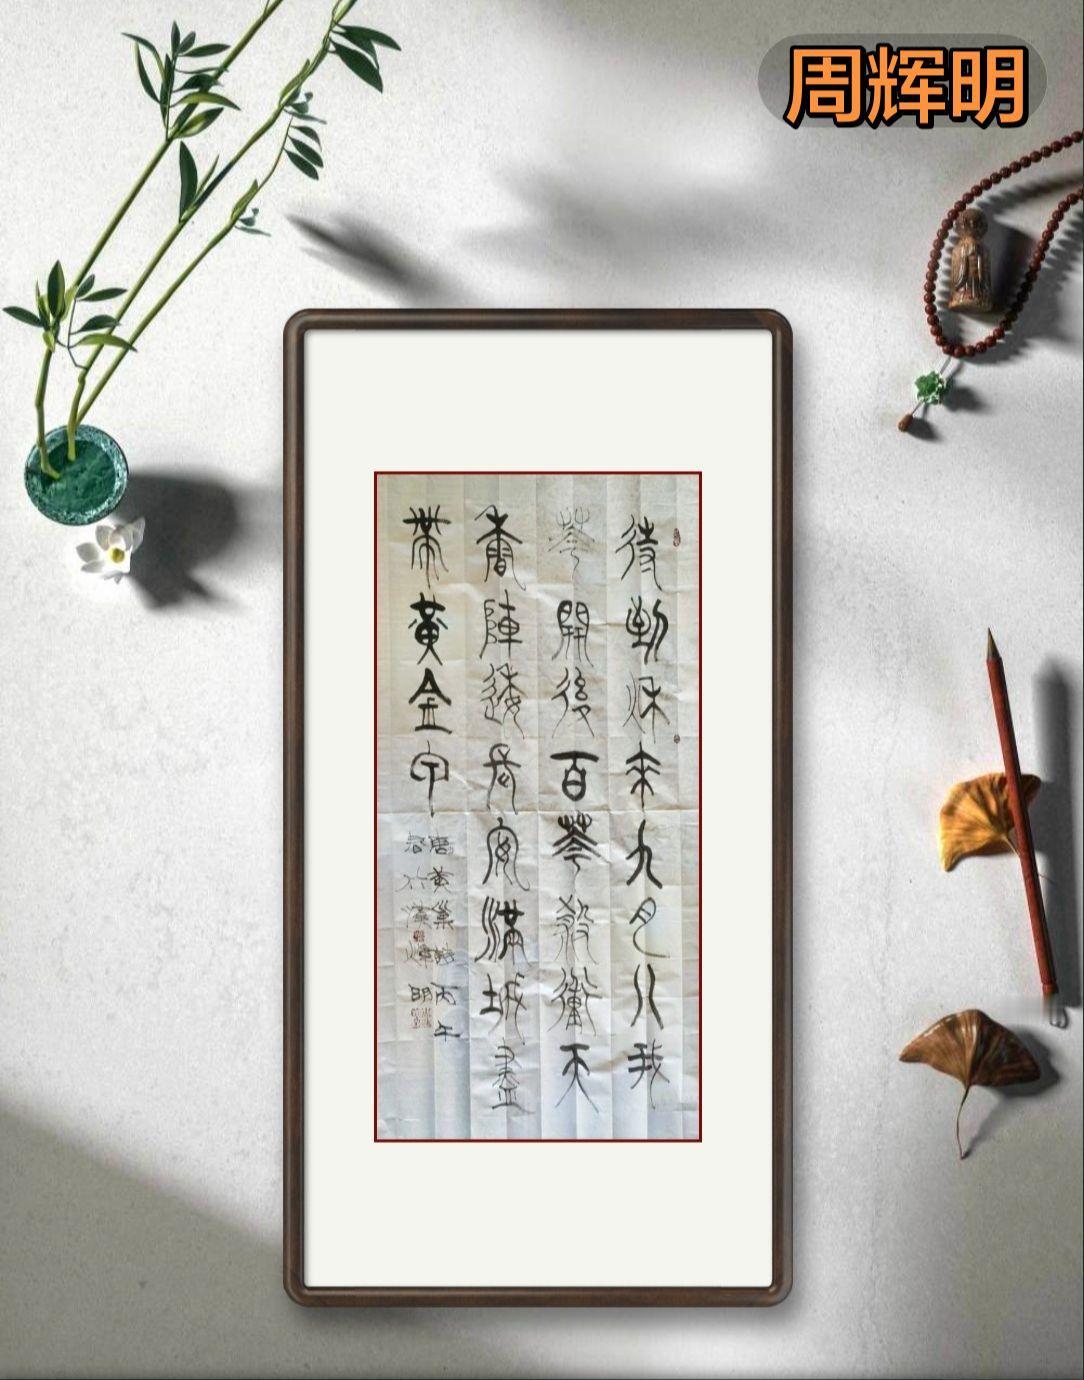 周辉明
待到秋來九月八我
華開後百華殺衝天
香陣透長安滿城盡
帶黃金甲
唐黄巢詩丙午
煇明